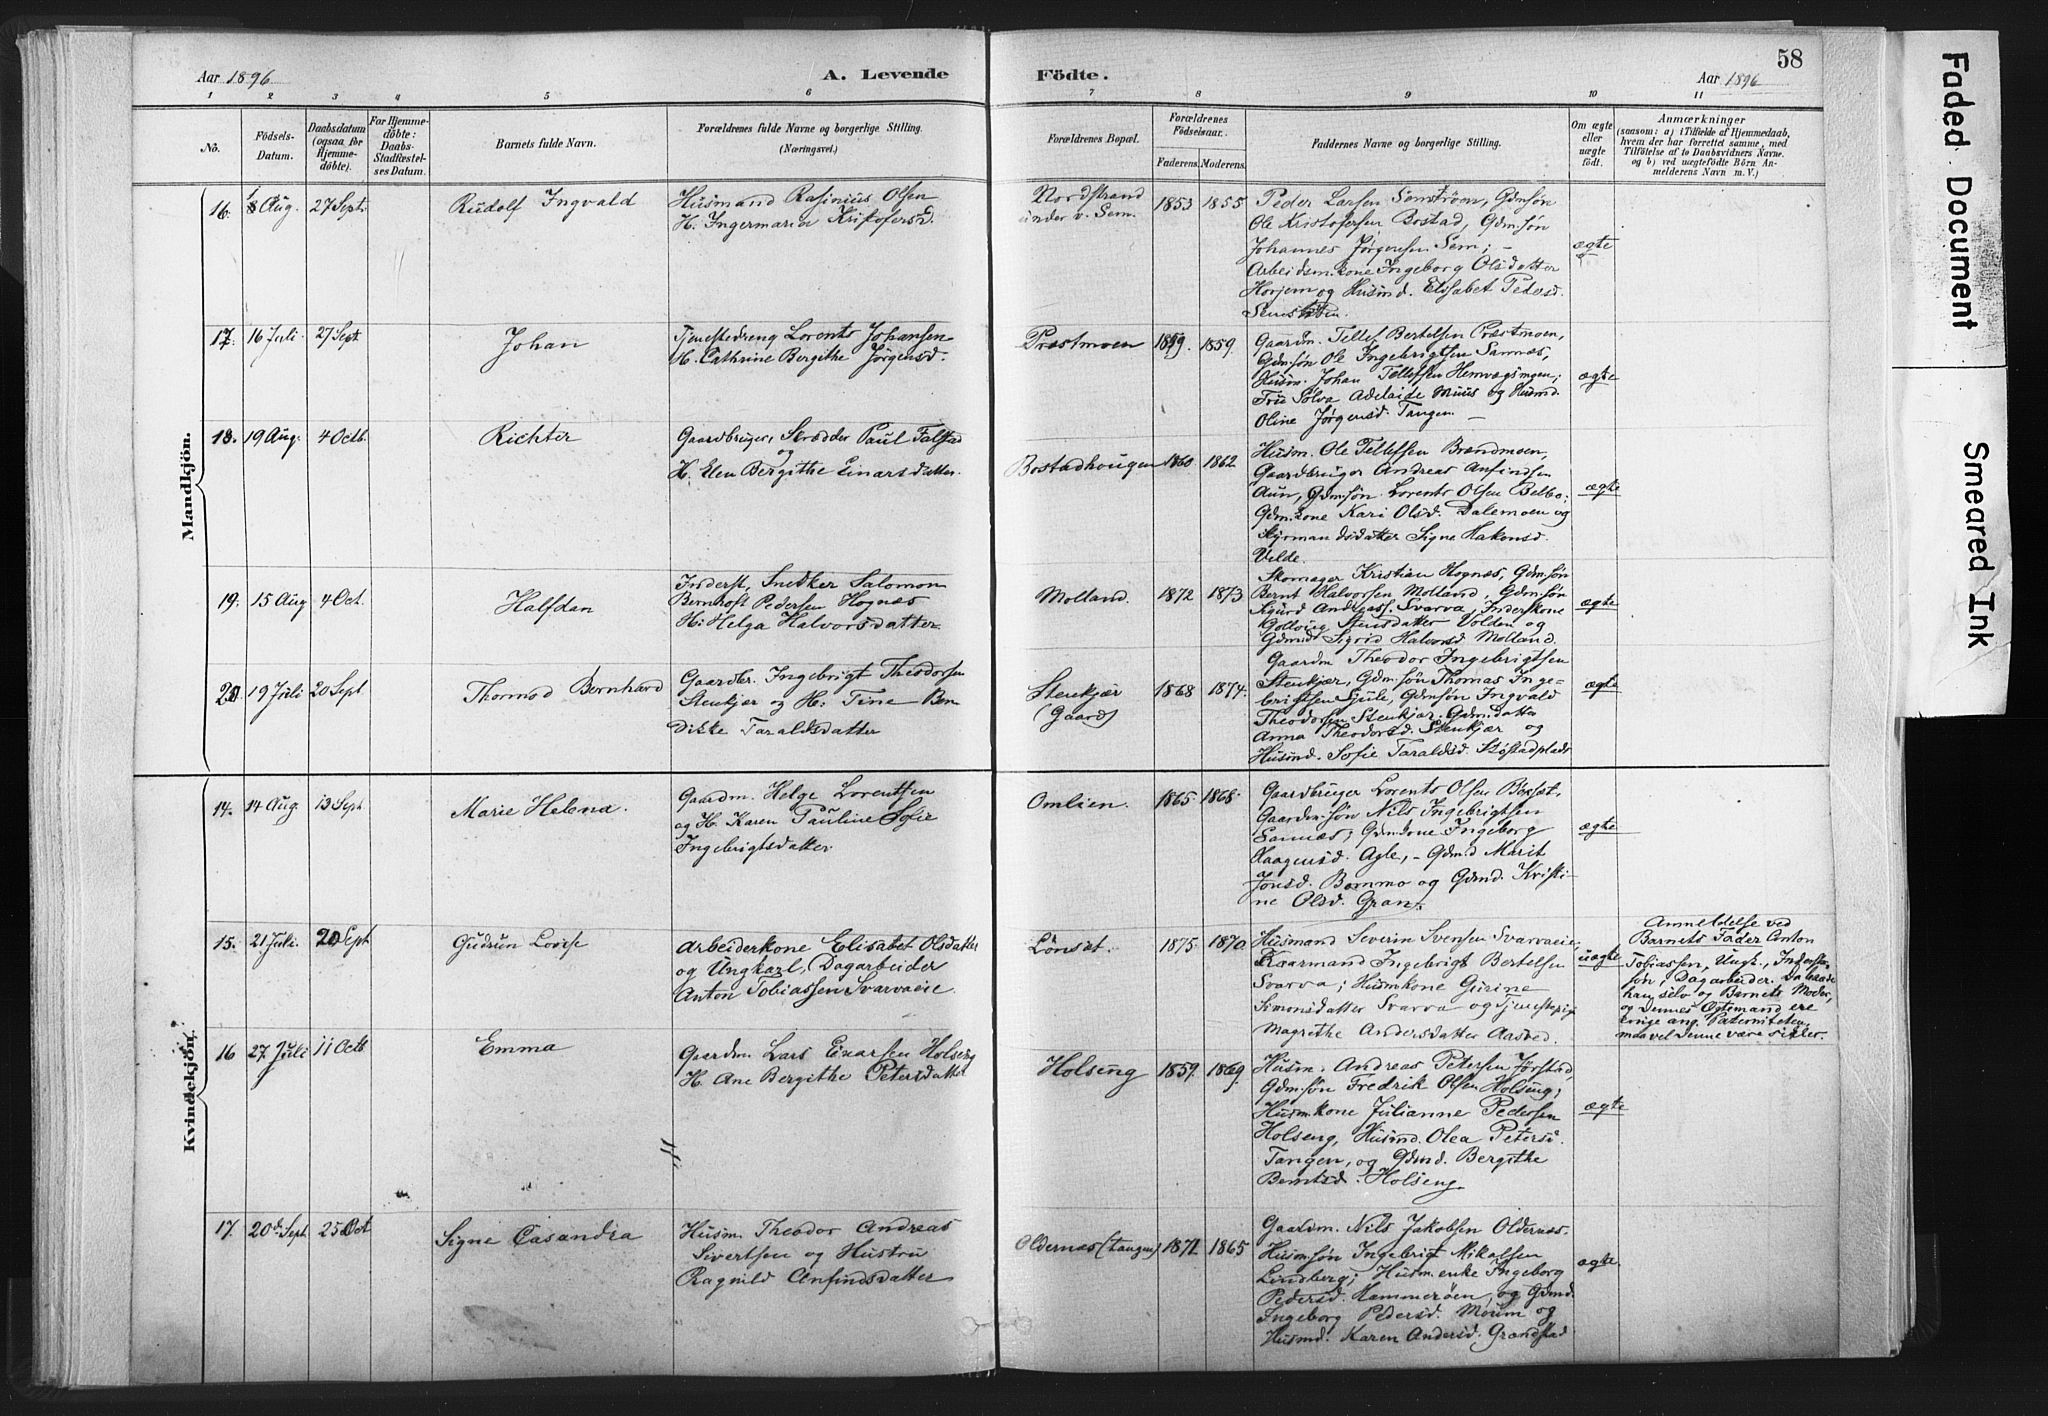 58
Aar 1896
A. Levende
Födte.
Aar 1896
1 2 3 4 5 6 7 8 9 10 11
No.
Födsels-
Datum.
Daabsdatum
(ogsaa for
Hjemme-
döbte).
For Hjemme-
döbte:
Daabs-
Stadfæstel-
ses Datum.
Barnets fulde Navn.
Forældrenes fulde Navne og borgerlige Stilling.
(Næringsvei.)
Forældrenes Bopæl.
Forældrenes
Födselsaar.
Faderens. Moderens.
Faddernes Navne og borgerlige Stilling.
Om ægte
eller
uægte
födt.
Anmærkninger
(saasom: a) i Tilfælde af Hjemmedaab,
hvem der har forrettet samme, med
Tilföielse af to Daabsvidners Navne.
og b) ved uægtefödte Börn An-
melderens Navn m. V.)
Mandkjön.
16. 8 Aug. 27 Sept. Rudolf Ingvald
Husmand Rasinius Olsen
H. Ingermaria Kristofersd.
Nordstrand
under v. Sem.
1853 1855
Peder Larsen Semstrøm, Gdmsøn
Ole Kristofersen Bostad, Gdmsøn
Johannes Jørgensen Sem; –
Arbeidsm.kone Ingeborg Olsdatter
Horjem og Husmd. Elisabet Pedersd.
ægte
17. 16 Juli. 27 Sept Johan
Tjenestedreng Lorents Johansen
H. Cathrine Bergithe Jørgensd.
Præstmoen 1859.
Gaardm. Tellef Bertelsen Præstmoen,
Gdmsøn Ole Ingebrigtsen Sannæs,
Husm. Johan Tellefsen
Fru Solva Adelaide Muus og Husmd.
Oline Jørgensd. Tangen. –
ægte
18. 19 Aug. 4 Octb. Richter
Gaardbruger, Skrædder Paul Falstad
og
H. Elen Bergithe Einarsdatter.
Bostadhougen 1860 1862
Husm. Ole Tellefsen Brandmoen,
Gaardbruger Andreas Anfindsen
Aun, Gdmsøn Lorents Olsen Belbo;
Gdmkone Kari Olsd. Dalemoen og
datter Signe Hakonsd.
Velde.
ægte
19. 15 Aug 4 Oct. Halfdan
Inderst, Snedker Salomon
Bernhoft Pedersen Hognæs
H. Helga Halvorsdatter
Molland. 1872 1873
Skomager Kristian Hognæs, Gdmsøn
Bernt Halvorsen Molland, Gdmsøn
Sigurd Andreass. Svarva, Inderskone
Stensdatter Volden og
Gdmd Sigrid Halvorsd Molland.
ægte
20. 19 Juli 20 Sept Thormod Bernhard
Gaardbr. Ingebrigt Theodorsen
Stenkjær og H: Tine Ben
dikke Taraldsdatter
Stenkjær
(Gaard)
1868 1874.
Gaardm Theodor Ingebrigtsen
Stenkjær, Gdmsøn Thomas Inge-
brigtsen Sjule, Gdmsøn Ingvald
Theodorsen Stenkjær; Gdmsdatter
Anna Theodorsd. Stenkjær og
Husmd. Sofie Taraldsd.
ægte
Kvindekjön.
14. 14 Aug. 13 Sept Marie Helena.
Gaardm. Helge Lorentsen
og H. Karen Pauline Sofie
Ingebrigtsdatter
Omlien. 1865 1868.
Gaardbruger Lorents Olsen
Gaardm.søn Nils Ingebrigtsen
Sannæs; Gdmkone Ingeborg
Haagensd. Agle, – Gdmd Marit
Jonsd. Bommo og Gdmd. Kristi-
ne Olsd. Gran.
ægte
15. 21 Juli. 20 Sept Gudrun Lovise
Arbeiderkone Elisabet Olsdatter
og Ungkarl, Dagarbeider
Anton Tobiassen Svarvaeie.
Lønset. 1875. 1870.
Husmand Severin Svensen Svarvaeie,
Kaarmand Ingebrigt Bertelsen
Svarva; Husmkone Gurine
Simonsdatter Svarva og Tjenestepig
Magrethe Andersdatter Aasved.
uægte
Anmeldelse ved
Barnets Fader Anton
Tobiassen, Ungk., Inderst-
søn, Dagarbeider. Da baade
han selv og Barnets Moder,
og dennes Ægtemand ere
enige ang. Paterniteten,
maa vel denne være sikker.
16 27 Juli 11 Octb Emma
Gaardm Lars Einarsen Holseng
H. Ane Bergithe Petersdatter
Holseng 1859. 1869.
Husm. Andreas Petersen Jørstad,
Gdmsøn Fredrik Olsen Holseng;
Husmkone Julianne Pedersen
Holseng, Husmd. Olea Petersd.
Tangen, og Gdmd. Bergithe
Berntsd. Holseng.
ægte
17. 20de Sept 25 Oct Signe Casandra
Husm. Theodor Andreas
Sivertsen og Hustru
Ragnild Anfindsdatter
Oldernæs (tangen) 1871. 1865
Gaardm. Nils Jakobsen Oldernæs.
Husmsøn Ingebrigt Mikalsen
Lindberg; Husm.enke Ingeborg
Pedersd. Hammerøen, og Gdmd.
Ingeborg Pedersd. Moum og
Husmd. Karen Andersd. Grandstad
ægte.
Faded Document
Smeared Ink